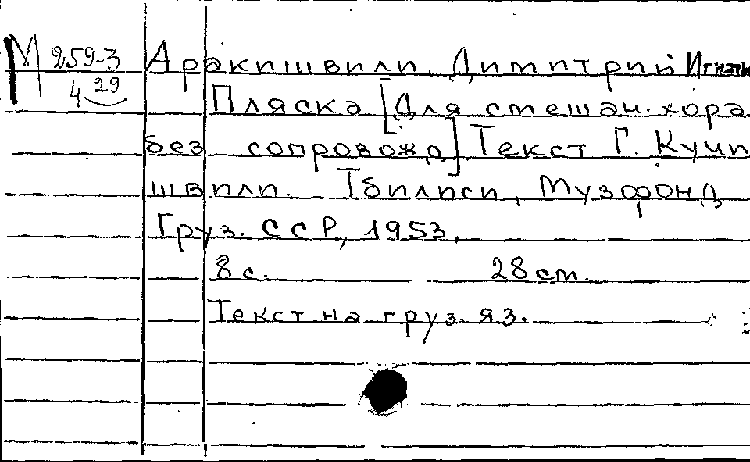 М 259-3 Аракишвили Димитрий Игнать
4 29
Пляска [Для смешан. хора
без сопровожд] Текст Г. Кучи
швили. Тбилиси, Музфонд
Груз. ССР, 1953.
8 с. 28 см.
Текст на груз. яз.